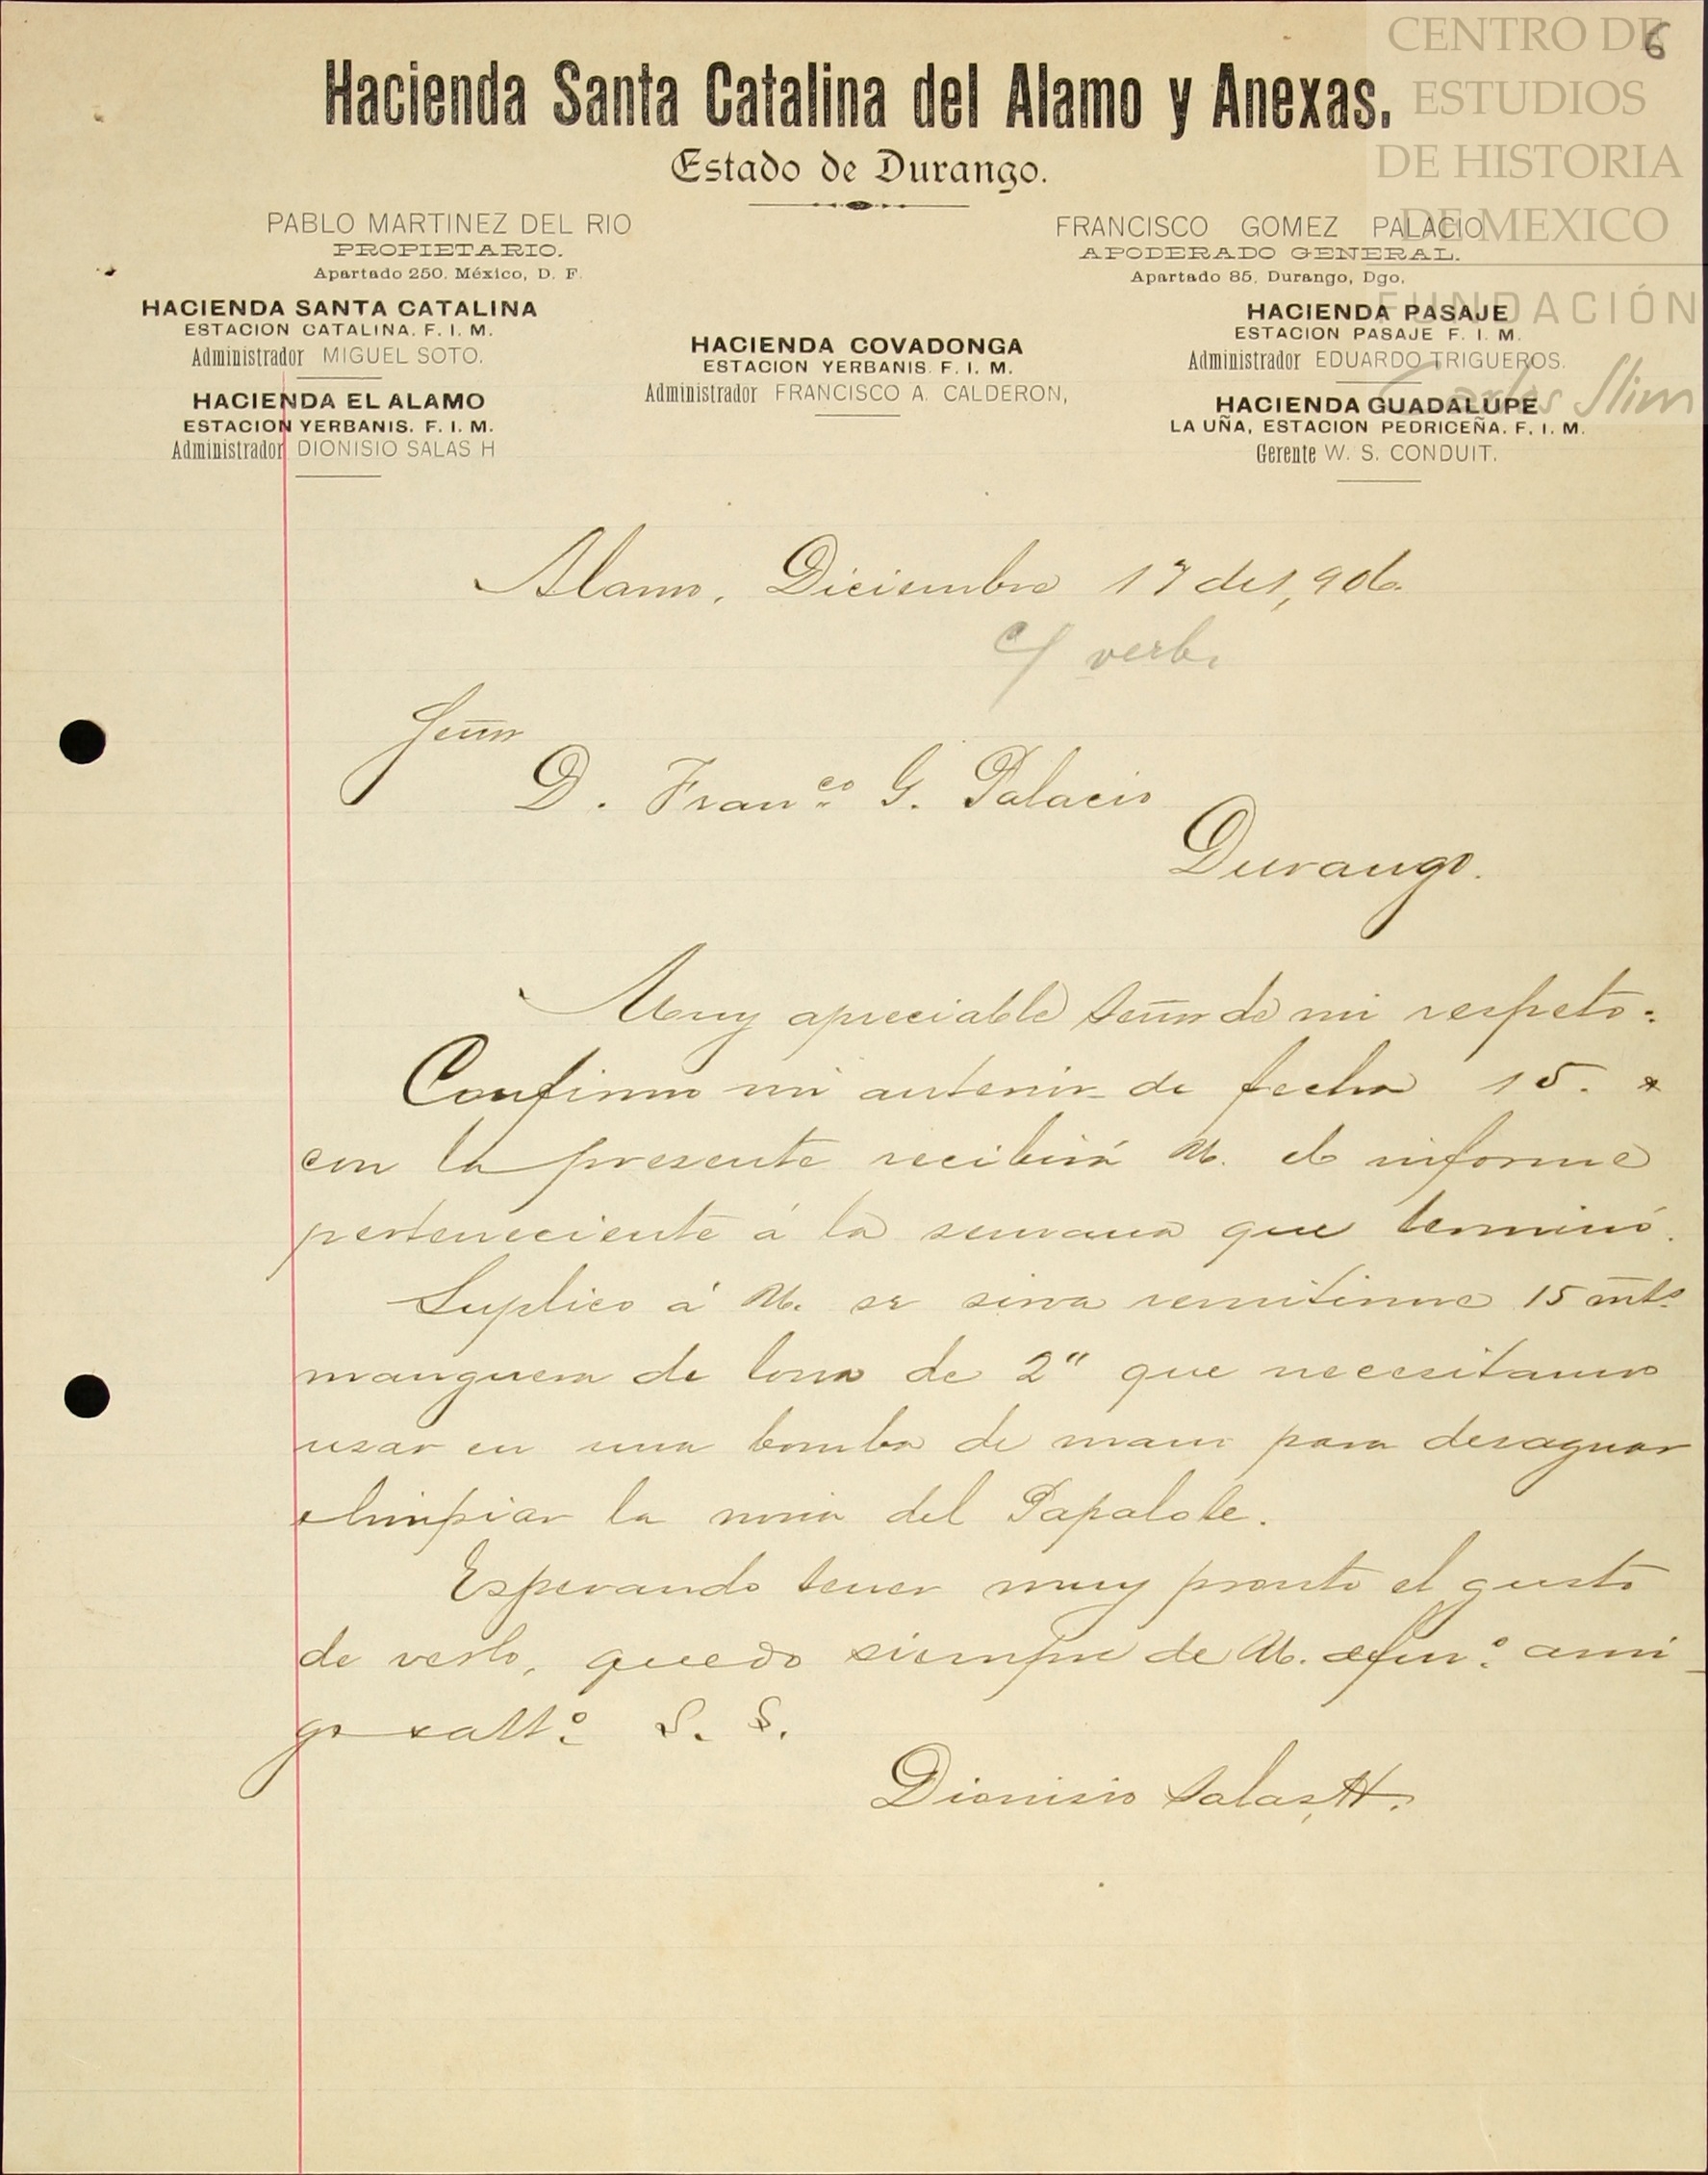 6
CENTRO DE
ESTUDIOS
DE HISTORIA
DE MEXICO
FUNDACIÓN
Carlos Slim
Hacienda Santa Catalina del Alamo y Anexas.
Estado de Durango.
PABLO MARTINEZ DEL RIO
PROPIETARIO.
Apartado 250. México, D. F.
FRANCISCO GOMEZ PALACIO
APODERADO GENERAL.
Apartado 85, Durango, Dgo.
HACIENDA SANTA CATALINA
ESTACION CATALINA. F. I. M.
Administrador MIGUEL SOTO.
HACIENDA EL ALAMO
ESTACION YERBANIS. F. I. M.
Administrador DIONISIO SALAS H
HACIENDA COVADONGA
ESTACION YERBANIS. F. I. M.
Administrador FRANCISCO A. CALDERON,
HACIENDA PASAJE
ESTACION PASAJE F. I. M.
Administrador EDUARDO TRIGUEROS.
HACIENDA GUADALUPE
LA UÑA, ESTACION PEDRICEÑA. F. I. M.
Gerente W. S. CONDUIT.
Alamo, Diciembre 17 de 1,906.
c/ verb.
Señor
D. Franco. G. Palacio
Durango.
Muy apreciable Señor de mi respeto:
Confirmo mi anterior de fecha 15. &
con la presente recibirá U. el informe
perteneciente á la semana que terminó.
Suplico á U. se sirva remitirme 15 mts.
manguera de lona de 2" que necesitamos
usar en una bomba de mano para desaguar
é limpiar la noria del Papalote.
Esperando tener muy pronto el gusto
de verlo, quedo siempre de U. afmo. ami-
go y atto. S. S.
Dionisio Salas H.